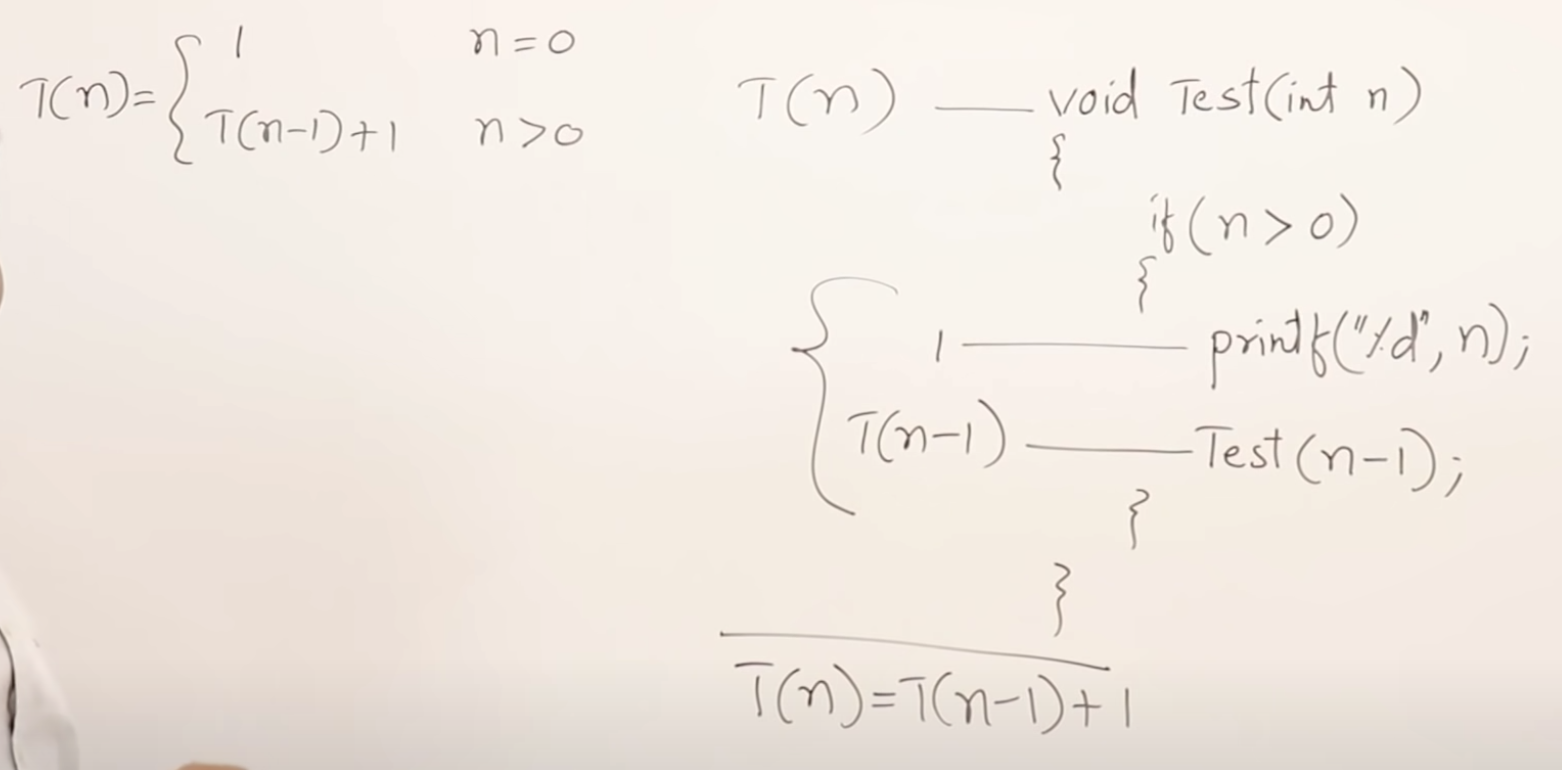 T(n)= { 1 n=0
T(n-1)+1 n>0
T(n) — void Test(int n)
{
if(n>0)
{
1 — printf("%d", n);
T(n-1) — Test(n-1);
}
}
T(n)=T(n-1)+1